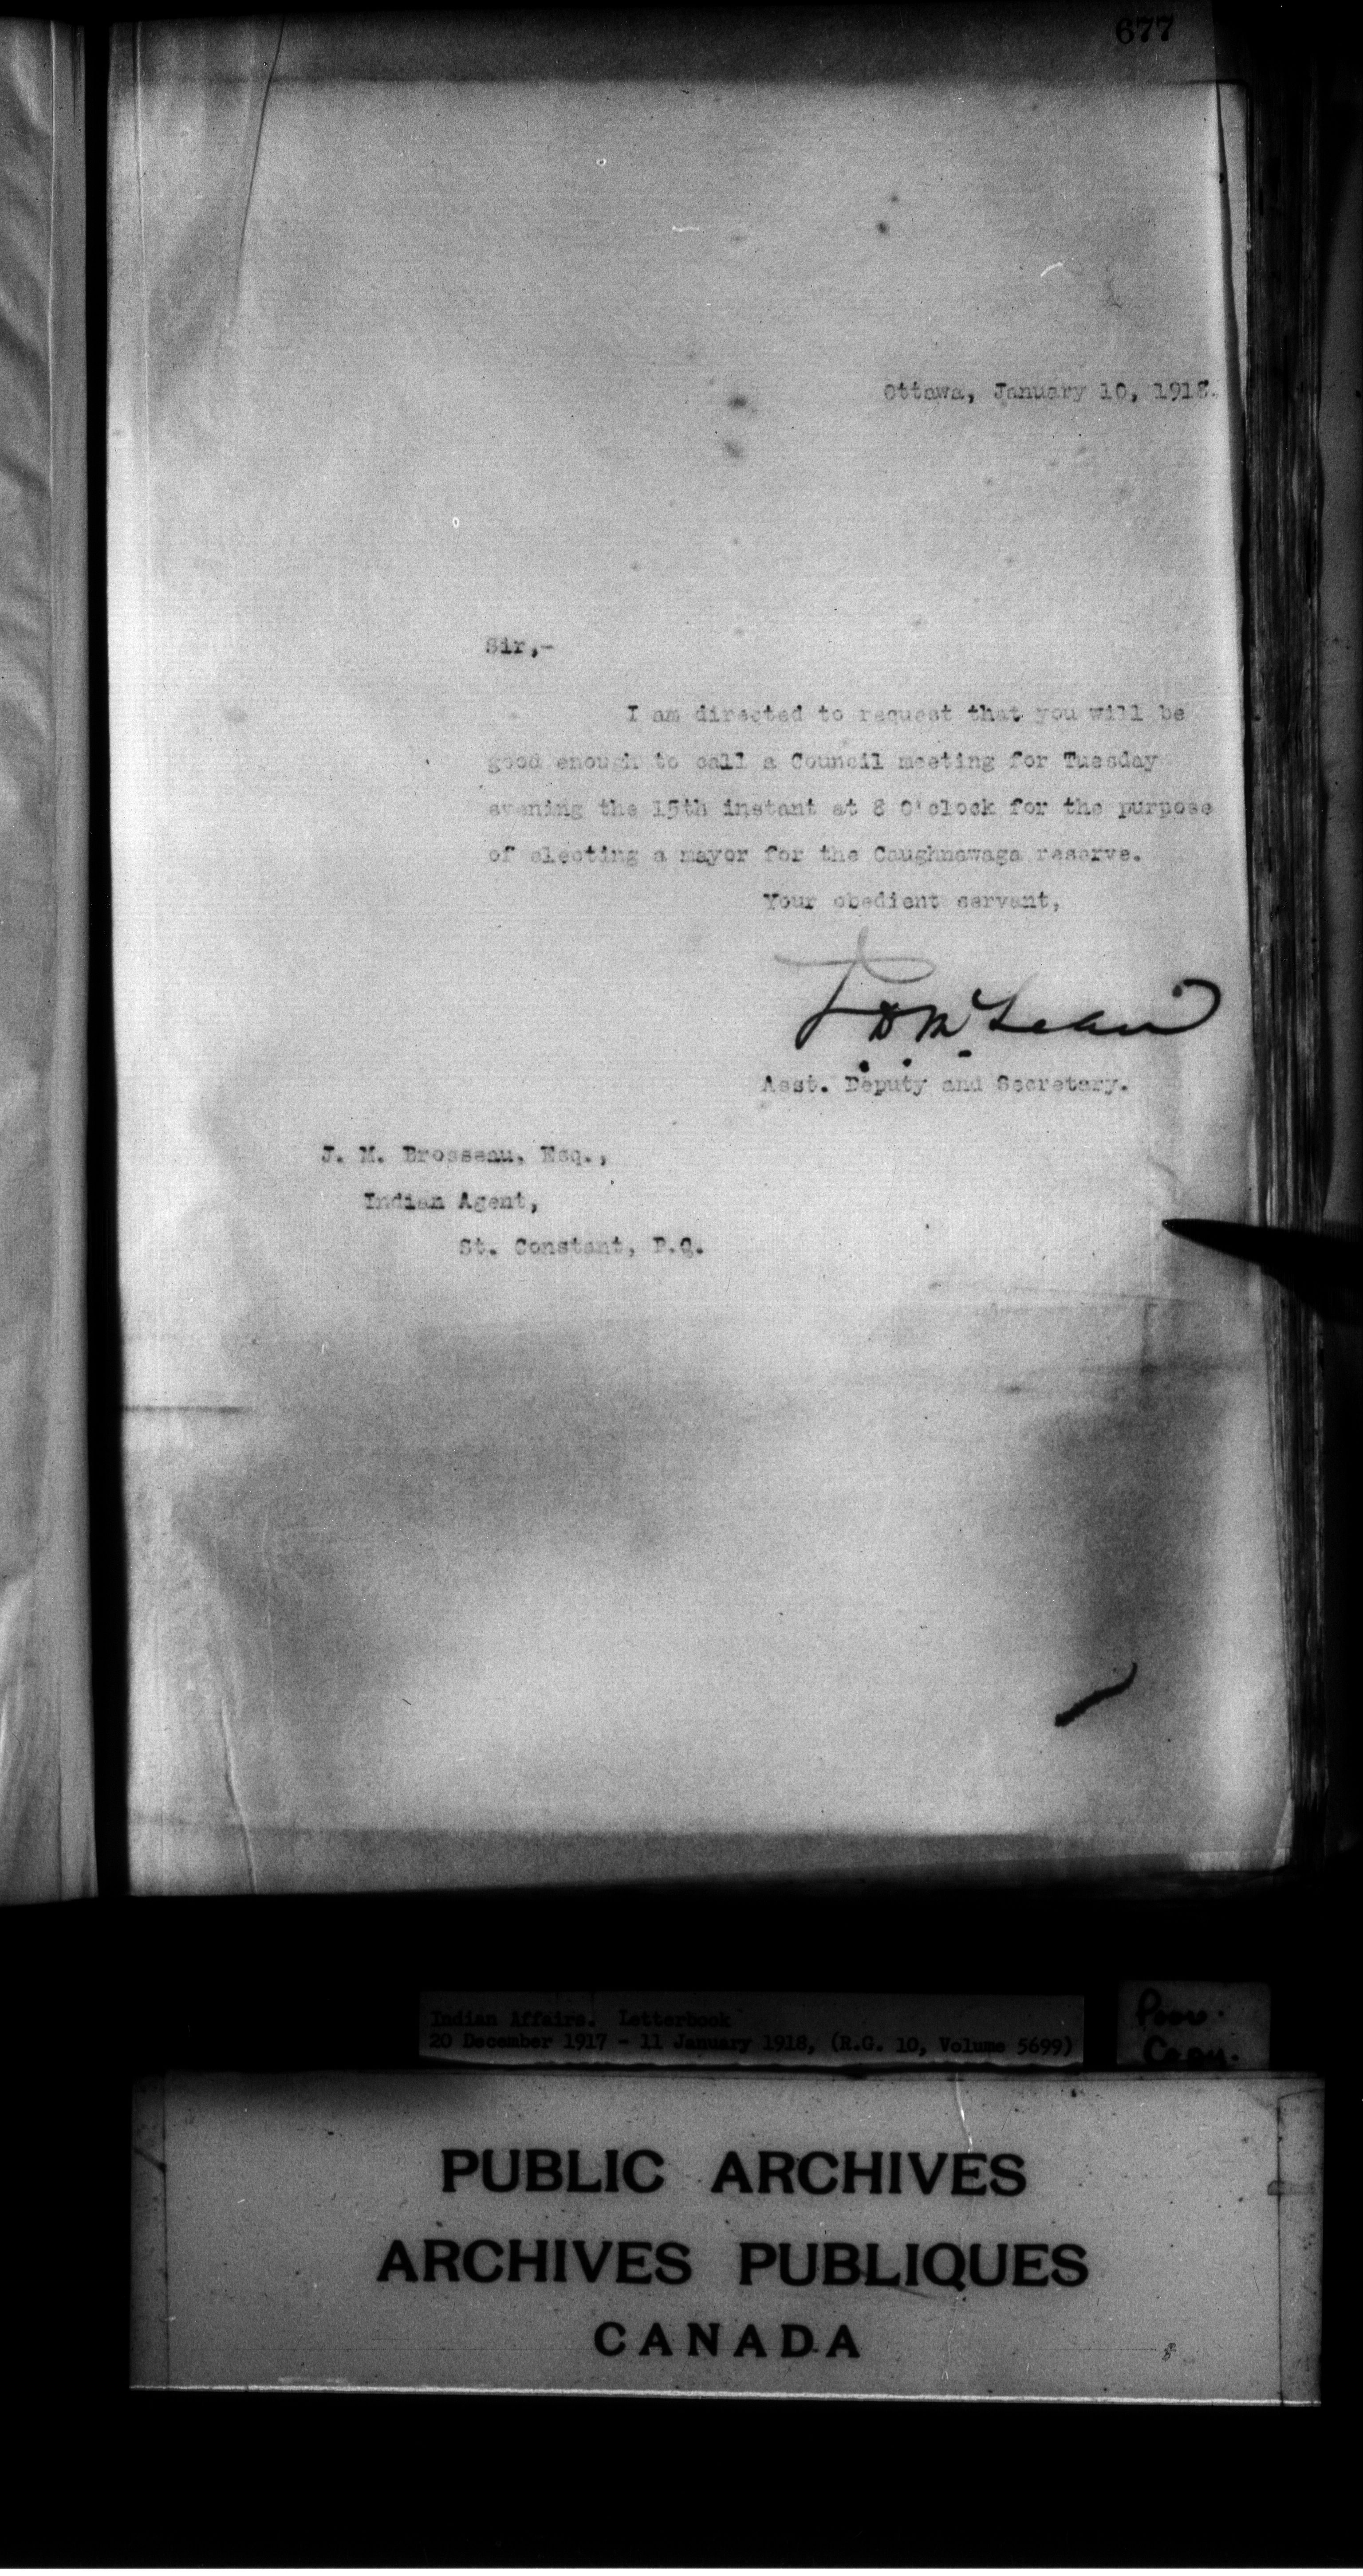 677
Ottawa, January 10, 1918.
Sir,-
I am directed to request that you will be
good enough to call a Council meeting for Tuesday
evening the 15th instant at 8 O'clock for the purpose
of electing a mayor for the Caughnawaga reserve.
Your obedient servant,
J D McLean
Asst. Deputy and Secretary.
J. M. Brosseau, Esq.,
Indian Agent,
St. Constant, P.Q.
Indian Affairs. Letterbook
20 December 1917 - 11 January 1918, (R.G. 10, Volume 5699)
Poor
Copy.
PUBLIC ARCHIVES
ARCHIVES PUBLIQUES
CANADA
8